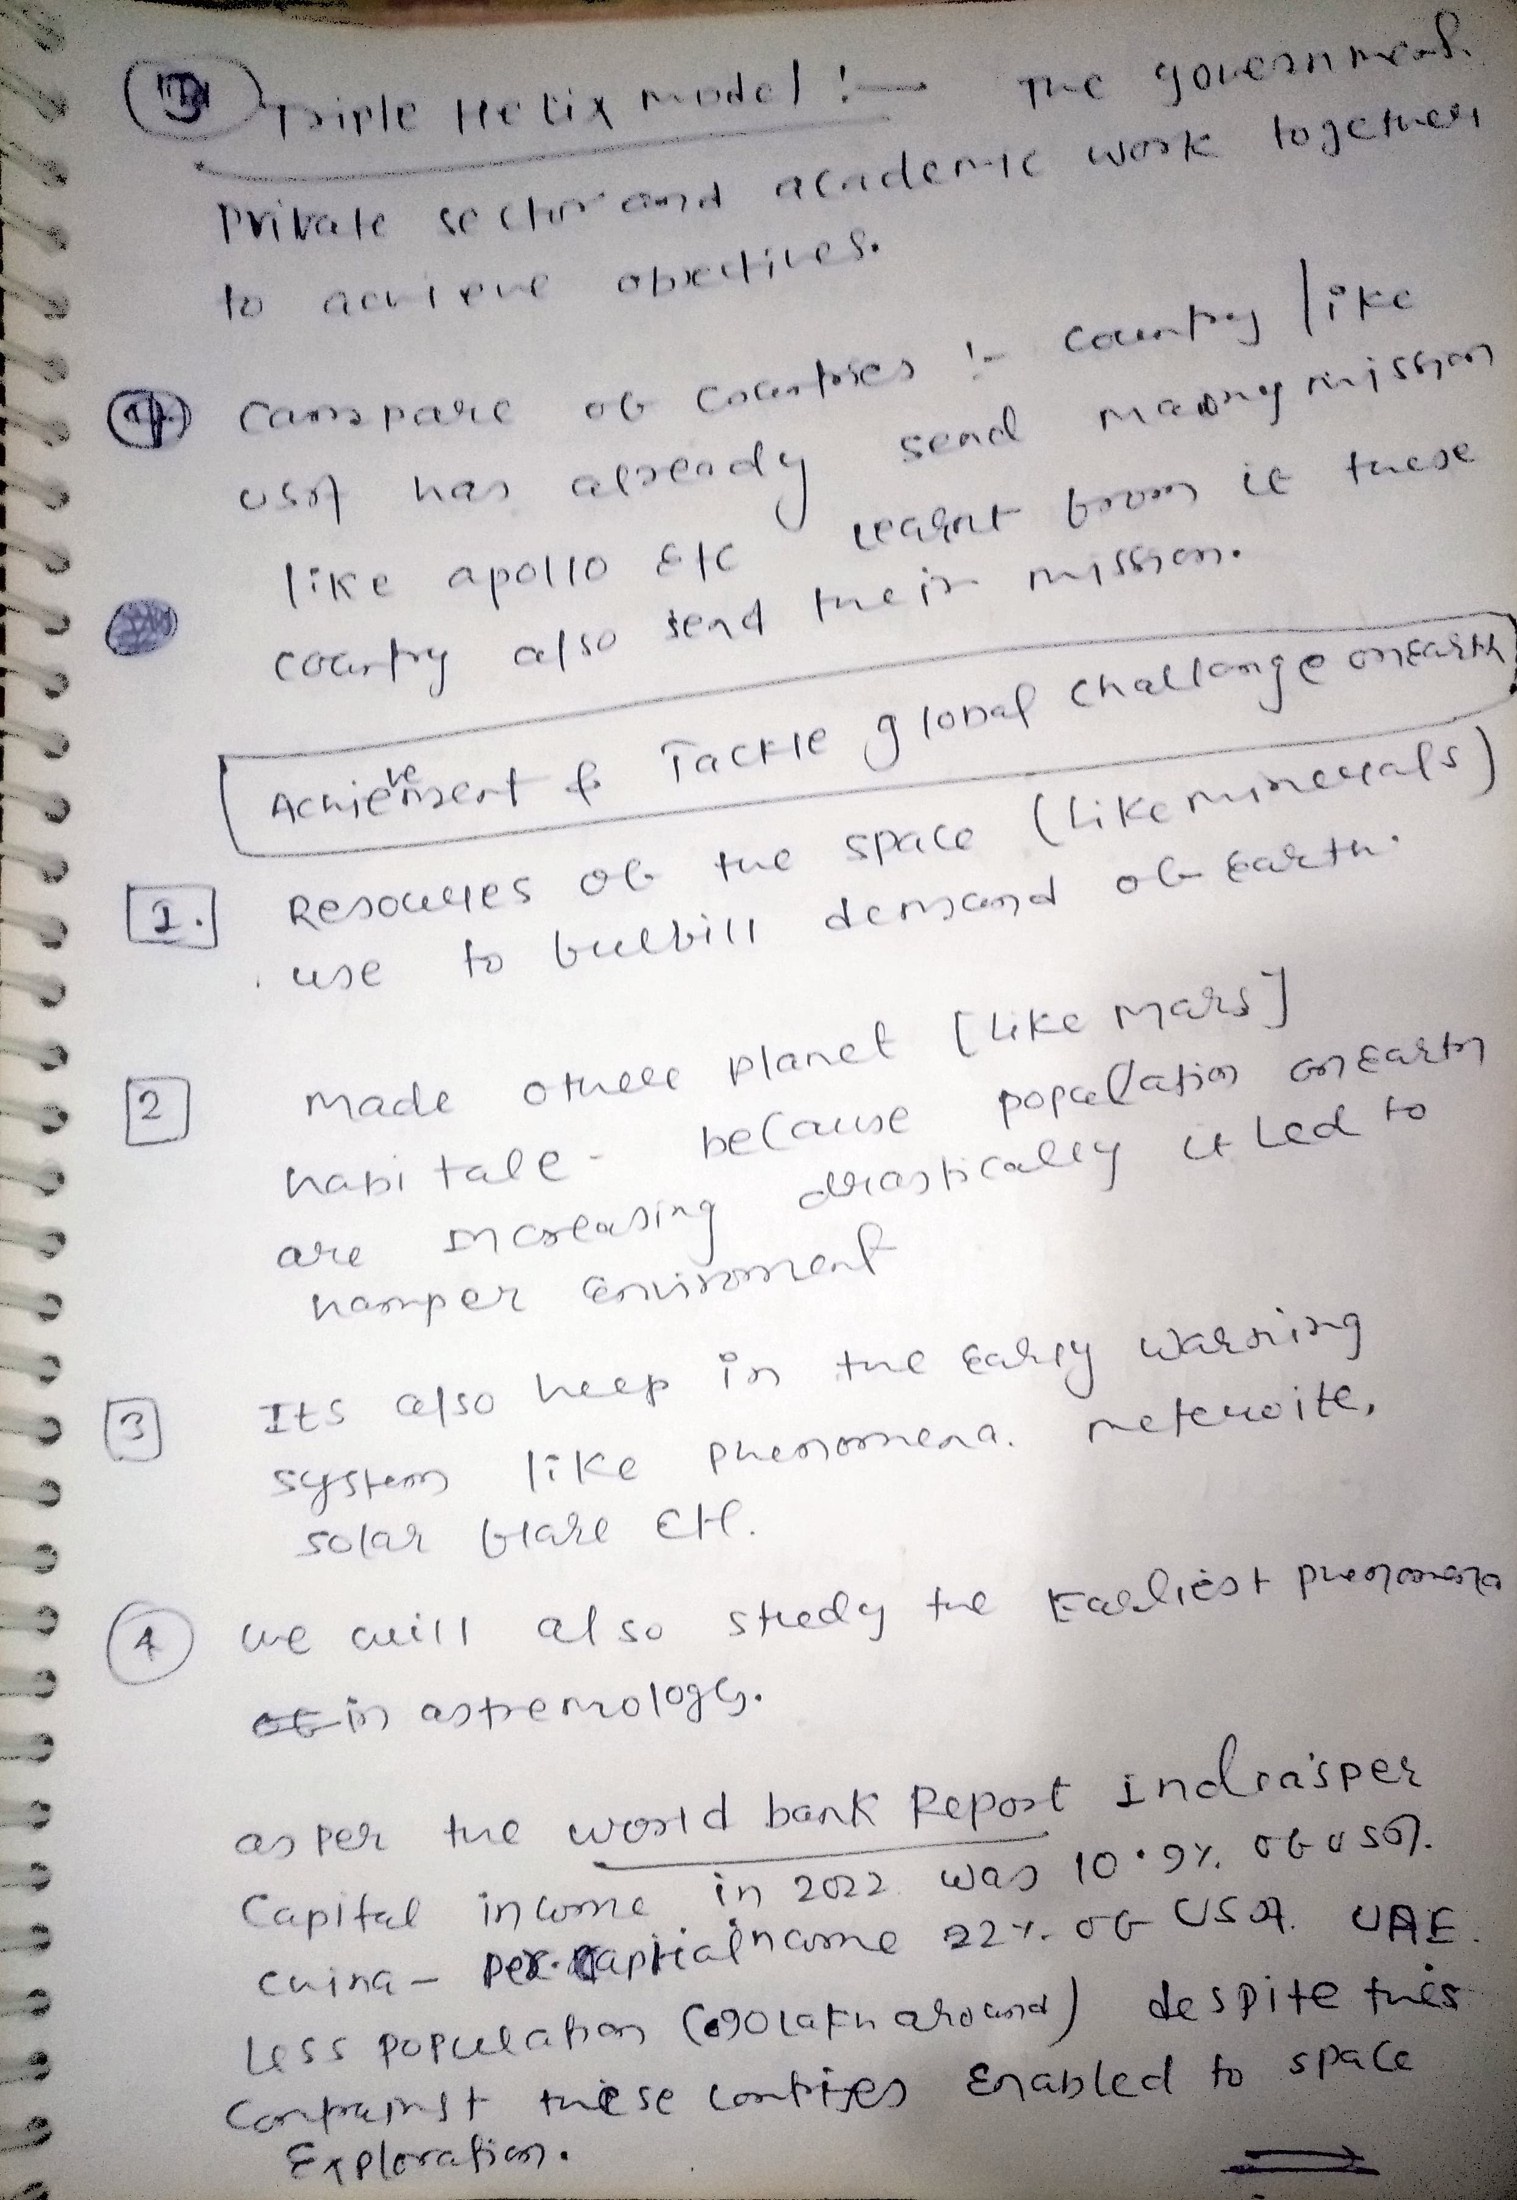 ③ Triple Helix model :- The government
Private sector and academic work together
to achieve objectives.
④ Compare of Countries :- Country like
USA has already send many mission
like apollo etc learnt from it these
country also send their mission.
Achievement & Tackle global challange on Earth
1. Resources of the space (like minerals)
use to fulfill demand of Earth.
2 Made other planet [like Mars]
habitale - because population on Earth
are increasing drastically it led to
hamper enviroment
3 Its also help in the Early warning
system like phenomena. meteroite,
solar flare etc.
4 we will also study the Earliest phenomena
of in astremology.
as per the world bank Report India's per
Capital income in 2022 was 10.9% of USA.
China - per capital income 22% of USA. UAE.
Less population (90 lakh around) despite this
Contrainst these contries Enabled to space
Exploration.